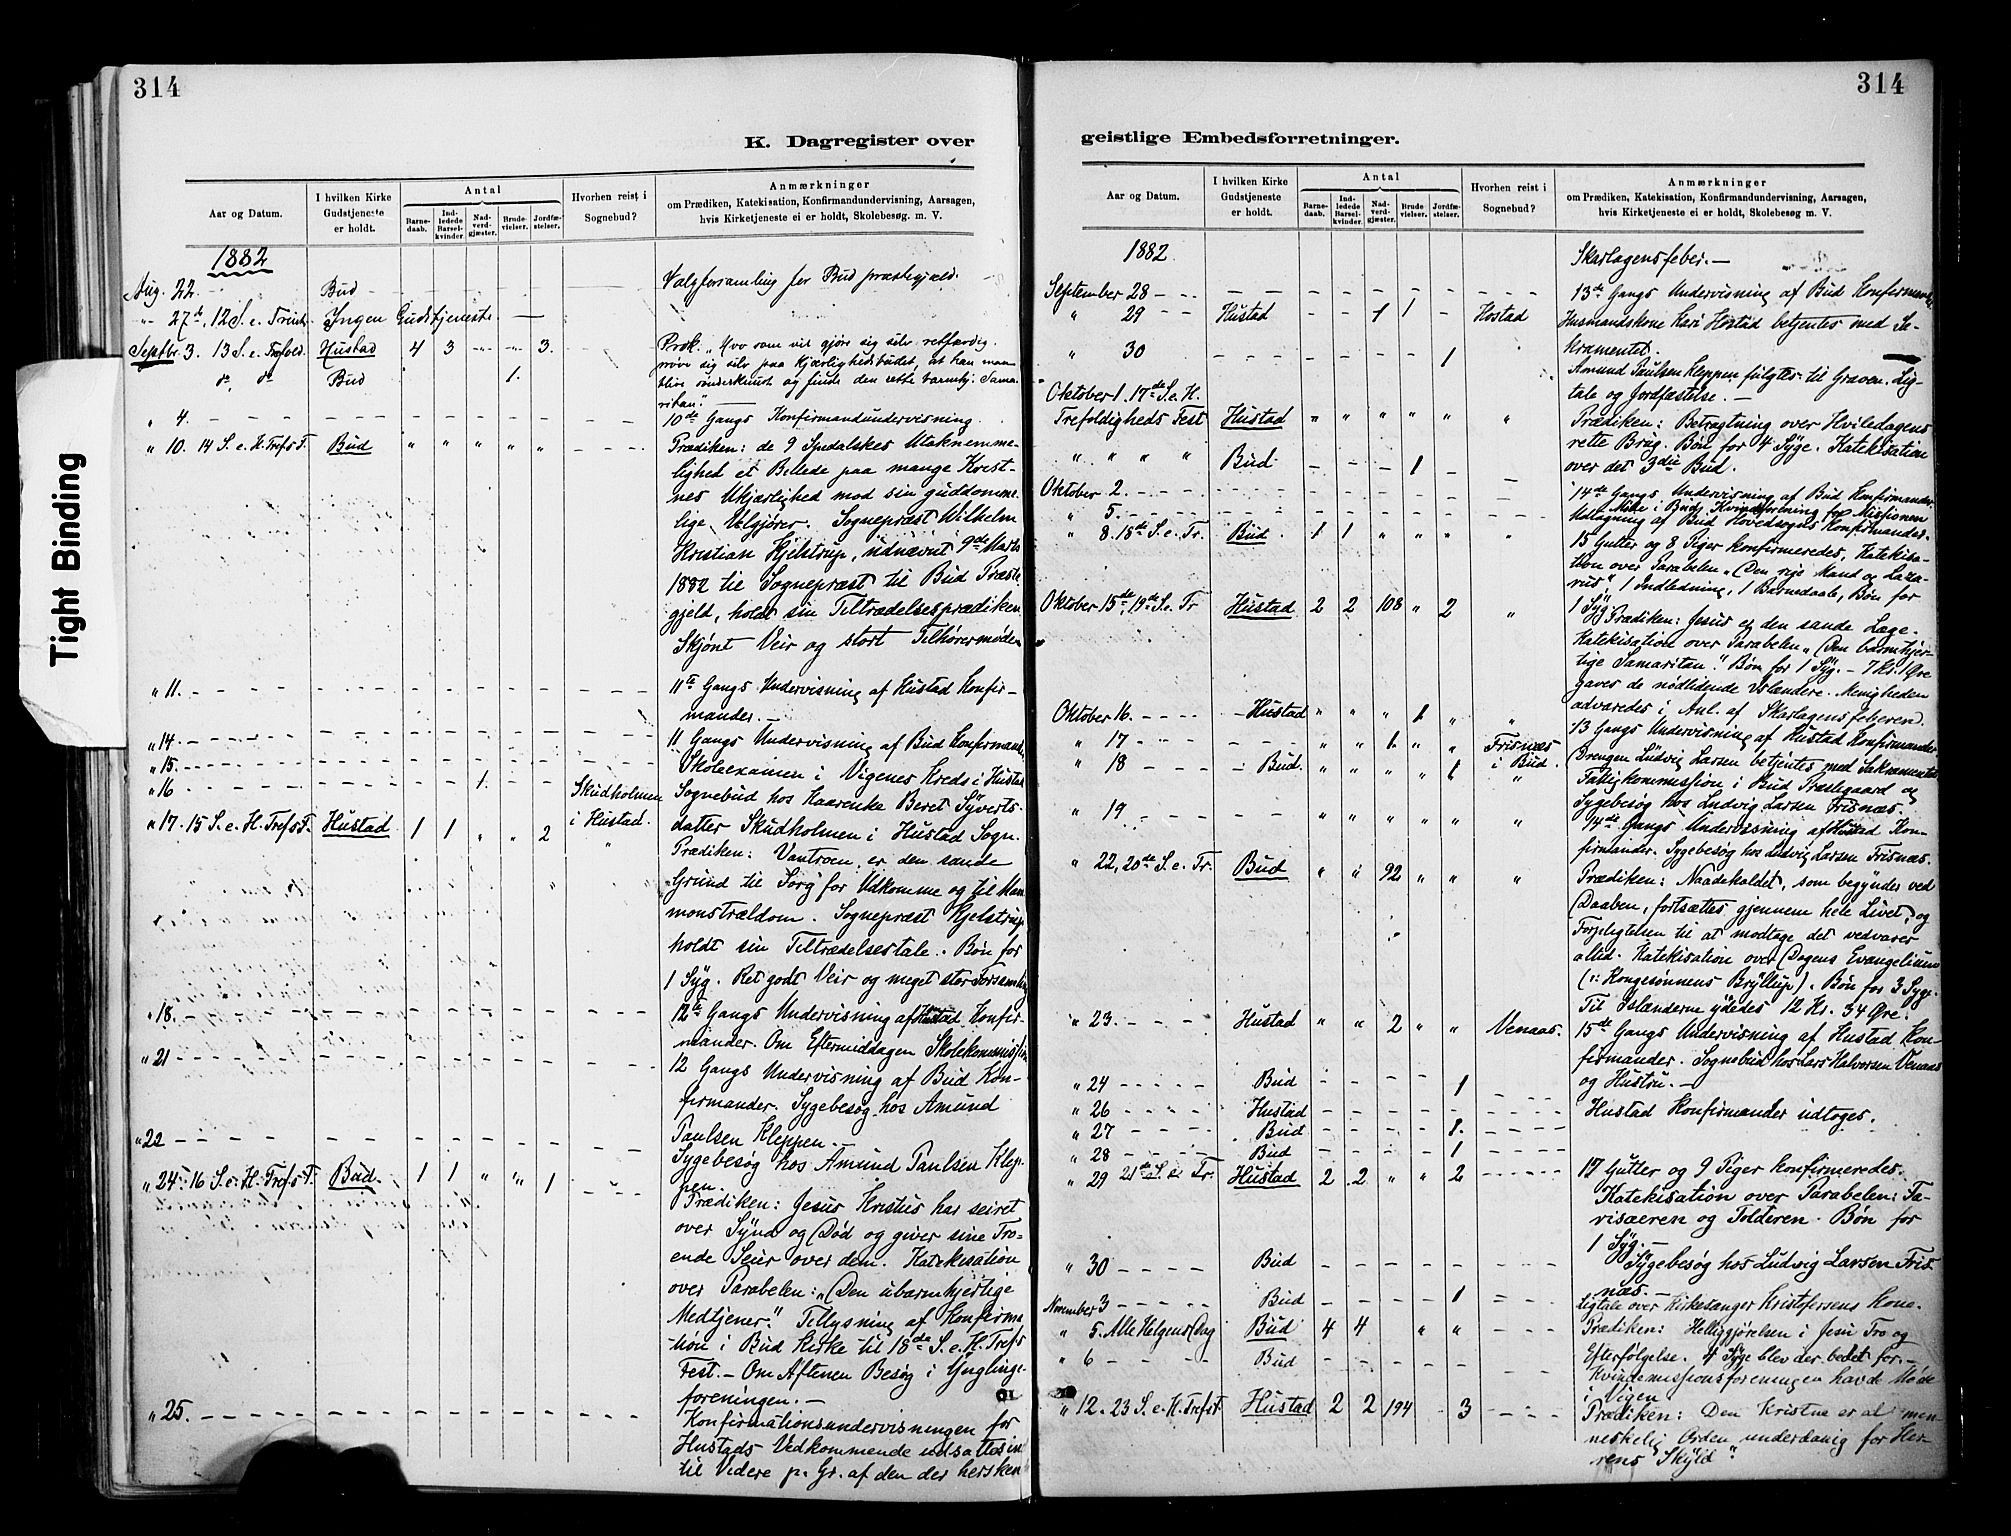 314
K. Dagregister over
Aar og Datum.
I hvilken Kirke
Gudstjeneste
er holdt.
Antal
Barne-
daab.
Ind-
ledede
Barsel-
kvinder
Nad-
verd-
gjæster.
Brude-
vielser.
Jordfæ-
stelser.
Hvorhen reist i
Sognebud?
Anmærkninger
om Prædiken, Katekisation, Konfirmandundervisning, Aarsagen,
hvis Kirketjeneste ei er holdt, Skolebesøg. m. V.
1882
Aug. 22. Bud Valgforsamling for Bud præstegjæld.
" 27de, 12 S. e. Trinit. Ingen Gudstjeneste
Septbr. 3. 13 S. e. Trefold. Hustad 4 3 3. Præk. "Hvo som vil gjøre sig selv retfærdig,
do, do Bud 1. prøve sig selv paa Kjærlighedsbudet, at han maa
blive sønderknust og finde den rette barmhj. Sama-
ritan." —
" 4. 10de Gangs Konfirmandundervisning.
" 10. 14 S. e. H. Trefs F. Bud " " " " " Prædiken: de 9 Spedalskes Utaknemme-
lighed et Billede paa mange Krist-
nes Ukjærlighed mod sin guddomme-
lige Velgjører. Sognepræst Wilhelm
Kristian Hjelstrup, udnævnt 9de Marts
1882 til Sognepræst til Bud Præste-
gjeld, holdt sin Tiltrædelsesprædiken
Skjønt Veir og stort Tilhørermøde.
" 11. 11te Gangs Undervisning af Hustad Konfir-
mander. —
" 14. 11 Gangs Undervisning af Bud Konfirmand.
" 15. Skoleexamen i Vigenes Kreds i Hustad
" 16 1. Skudholmen Sognebud hos Haarenke Beret Syverts-
" 17. 15 S. e. H. Trefs F. Hustad 1 1 " " 2 i Hustad. datter Skudholmen i Hustad Sogn.
Prædiken: Vantroen er den sande
Grund til Sorg for Udkomme og til Mam-
monstrældom. Sognepræst Hjelstrup
holdt sin Tiltrædelsestale. Bøn for
1 Syg. Ret godt Veir og meget stor Forsamling
" 18. 12te Gangs Undervisning af Hustad Konfir-
mander. Om Eftermiddagen Skolekommission
" 21 12 Gangs Undervisning af Bud Kon-
firmander. Sygebesøg hos Amund
Paulsen Kleppen. —
" 22 Sygebesøg hos Amund Paulsen Klep-
pen.
" 24. 16 S. e. H. Trefs F. Bud. 1 1 " " 1 Prædiken: Jesus Kristus har seiret
over Synd og Død og giver sine Tro-
ende Seier over dem. Katekisation
over Parabelen: "Den ubarmhjertige
Medtjener." Tillysning af Konfirma-
tion i Bud Kirke til 18de S. e. H. Trefs
Fest. — Om Aftenen Besøg i Ynglinge-
foreningen. —
" 25. Konfirmationsundervisningen for
Hustads Vedkommende udsattes ind
til Videre p. Gr. af den der hersken
314
geistlige Embedsforretninger.
Aar og Datum.
I hvilken Kirke
Gudstjeneste
er holdt.
Antal
Barne-
daab.
Ind-
ledede
Barsel-
kvinder
Nad-
verd-
gjæster.
Brude
vielser.
Jordfæ-
stelser.
Hvorhen reist i
Sognebud?
Anmærkninger
om Prædiken, Katekisation, Konfirmandundervisning, Aarsagen,
hvis Kirketjeneste ei er holdt, Skolebesøg m. V.
1882 Skarlagensfeber. —
September 28 13de Gangs Undervisning af Bud Konfirmander
" 29 Hustad 1 1 Hostad Husmandskone Kari Hostad betjentes med Sa-
kramentet.
" 30 1 Amund Paulsen Kleppen fulgtes til Graven. Lig-
tale og Jordfæstelse. —
Oktober 1. 17de S. e. H.
Trefoldigheds Fest Hustad " " " " " " Prædiken: Betragtning over Hviledagens
rette Brug. Bøn for 4 Syge. Katekisation
" " " " Bud 1 over det 3die Bud.
Oktober 2. 14de Gangs Undervisning af Bud Konfirmander.
" 5. Møte i Bud Kvindeforening for Missionen
Udtagning af Bud Hovedsogns Konfirmander.
" 8. 18de S. e. Tr. Bud. 1 1 " " " " 15 Gutter og 8 Piger konfirmeredes, Katekisa-
tion over Parabelen "Den rige Mand og Laza-
rus" 1 Indledning, 1 Barnedaab, Bøn for
1 Syg
Oktober 15de, 19de S. e. Tr Hustad 2 2 108 " 2 " Prædiken: Jesus er den sande Læge.
Katekisation over Parabelen "Den barmhjer-
tige Samaritan." Bøn for 1 Syg. — 7 Kr. 1 Øre
gaves de nødlidende Islændere. Menigheden
advaredes i Anl. af Skarlagensfeberen.
Oktober 16. Hustad " " " 1 " " 13 Gangs Undervisning af Hustad Konfirmander
" 17 " " 1. " " Frisnæs i Bud. Drengen Ludvig Larsen betjentes med Sakramentet
" 18 Bud. " " " " 1 " Fattigkommission i Bud Præstegaard og
Sygebesøg hos Ludvig Larsen Frisnæs.
" 19 " " " " " " 14de Gangs Undervisning af Hustad Kon-
firmander. Sygebesøg hos Ludvig Larsen Frisnæs.
" 22, 20de S. e. Tr. Bud " " 92 " " " Prædiken: Naadekaldet, som begynder ved
Daaben, fortsættes gjennem hele Livet, og
Forpligtelsen til at modtage det vedvarer
altid. Katekisation over Dagens Evangelium
(: Kongesønnens Bryllup). Bøn for 3 Syge.
Til Islænderne ydedes 12 Kr. 34 Øre.
" 23. Hustad " " 2 " " Venaas. 15de Gangs Undervisning af Hustad Kon-
firmander. Sognebud hos Lars Halvorsen Venaas
og Hustru. —
" 24 Bud 1
" 26 Hustad Hustad Konfirmander udtoges.
" 27 Bud 1.
" 28 Bud 1
" 29 21de S. e. Tr. Hustad 2 2 " " 2 17 Gutter og 9 Piger konfirmeredes.
Katekisation over Parabelen: Fa-
risæeren og Tolderen. Bøn for
1 Syg. —
" 30 Bud Sygebesøg hos Ludvig Larsen Fris-
næs. —
November 3 Bud 1 Ligtale over Kirkesanger Kristofersens Kone.
" 5. Alle Helgens Dag Bud 4 4 " " Prædiken: Helliggjørelsen i Jesu Tro og
Efterfølgelse. 4 Syge blev der bedet for. —
" 6 Bud Kvindemissionsforeningen havde Møde
i Vigen
" 12. 23 S. e. H. Trefs F Hustad 2 2 194 3 Prædiken: Den Kristne er al men-
neskelig Orden underdanig for Her-
rens Skyld".
Tight Binding